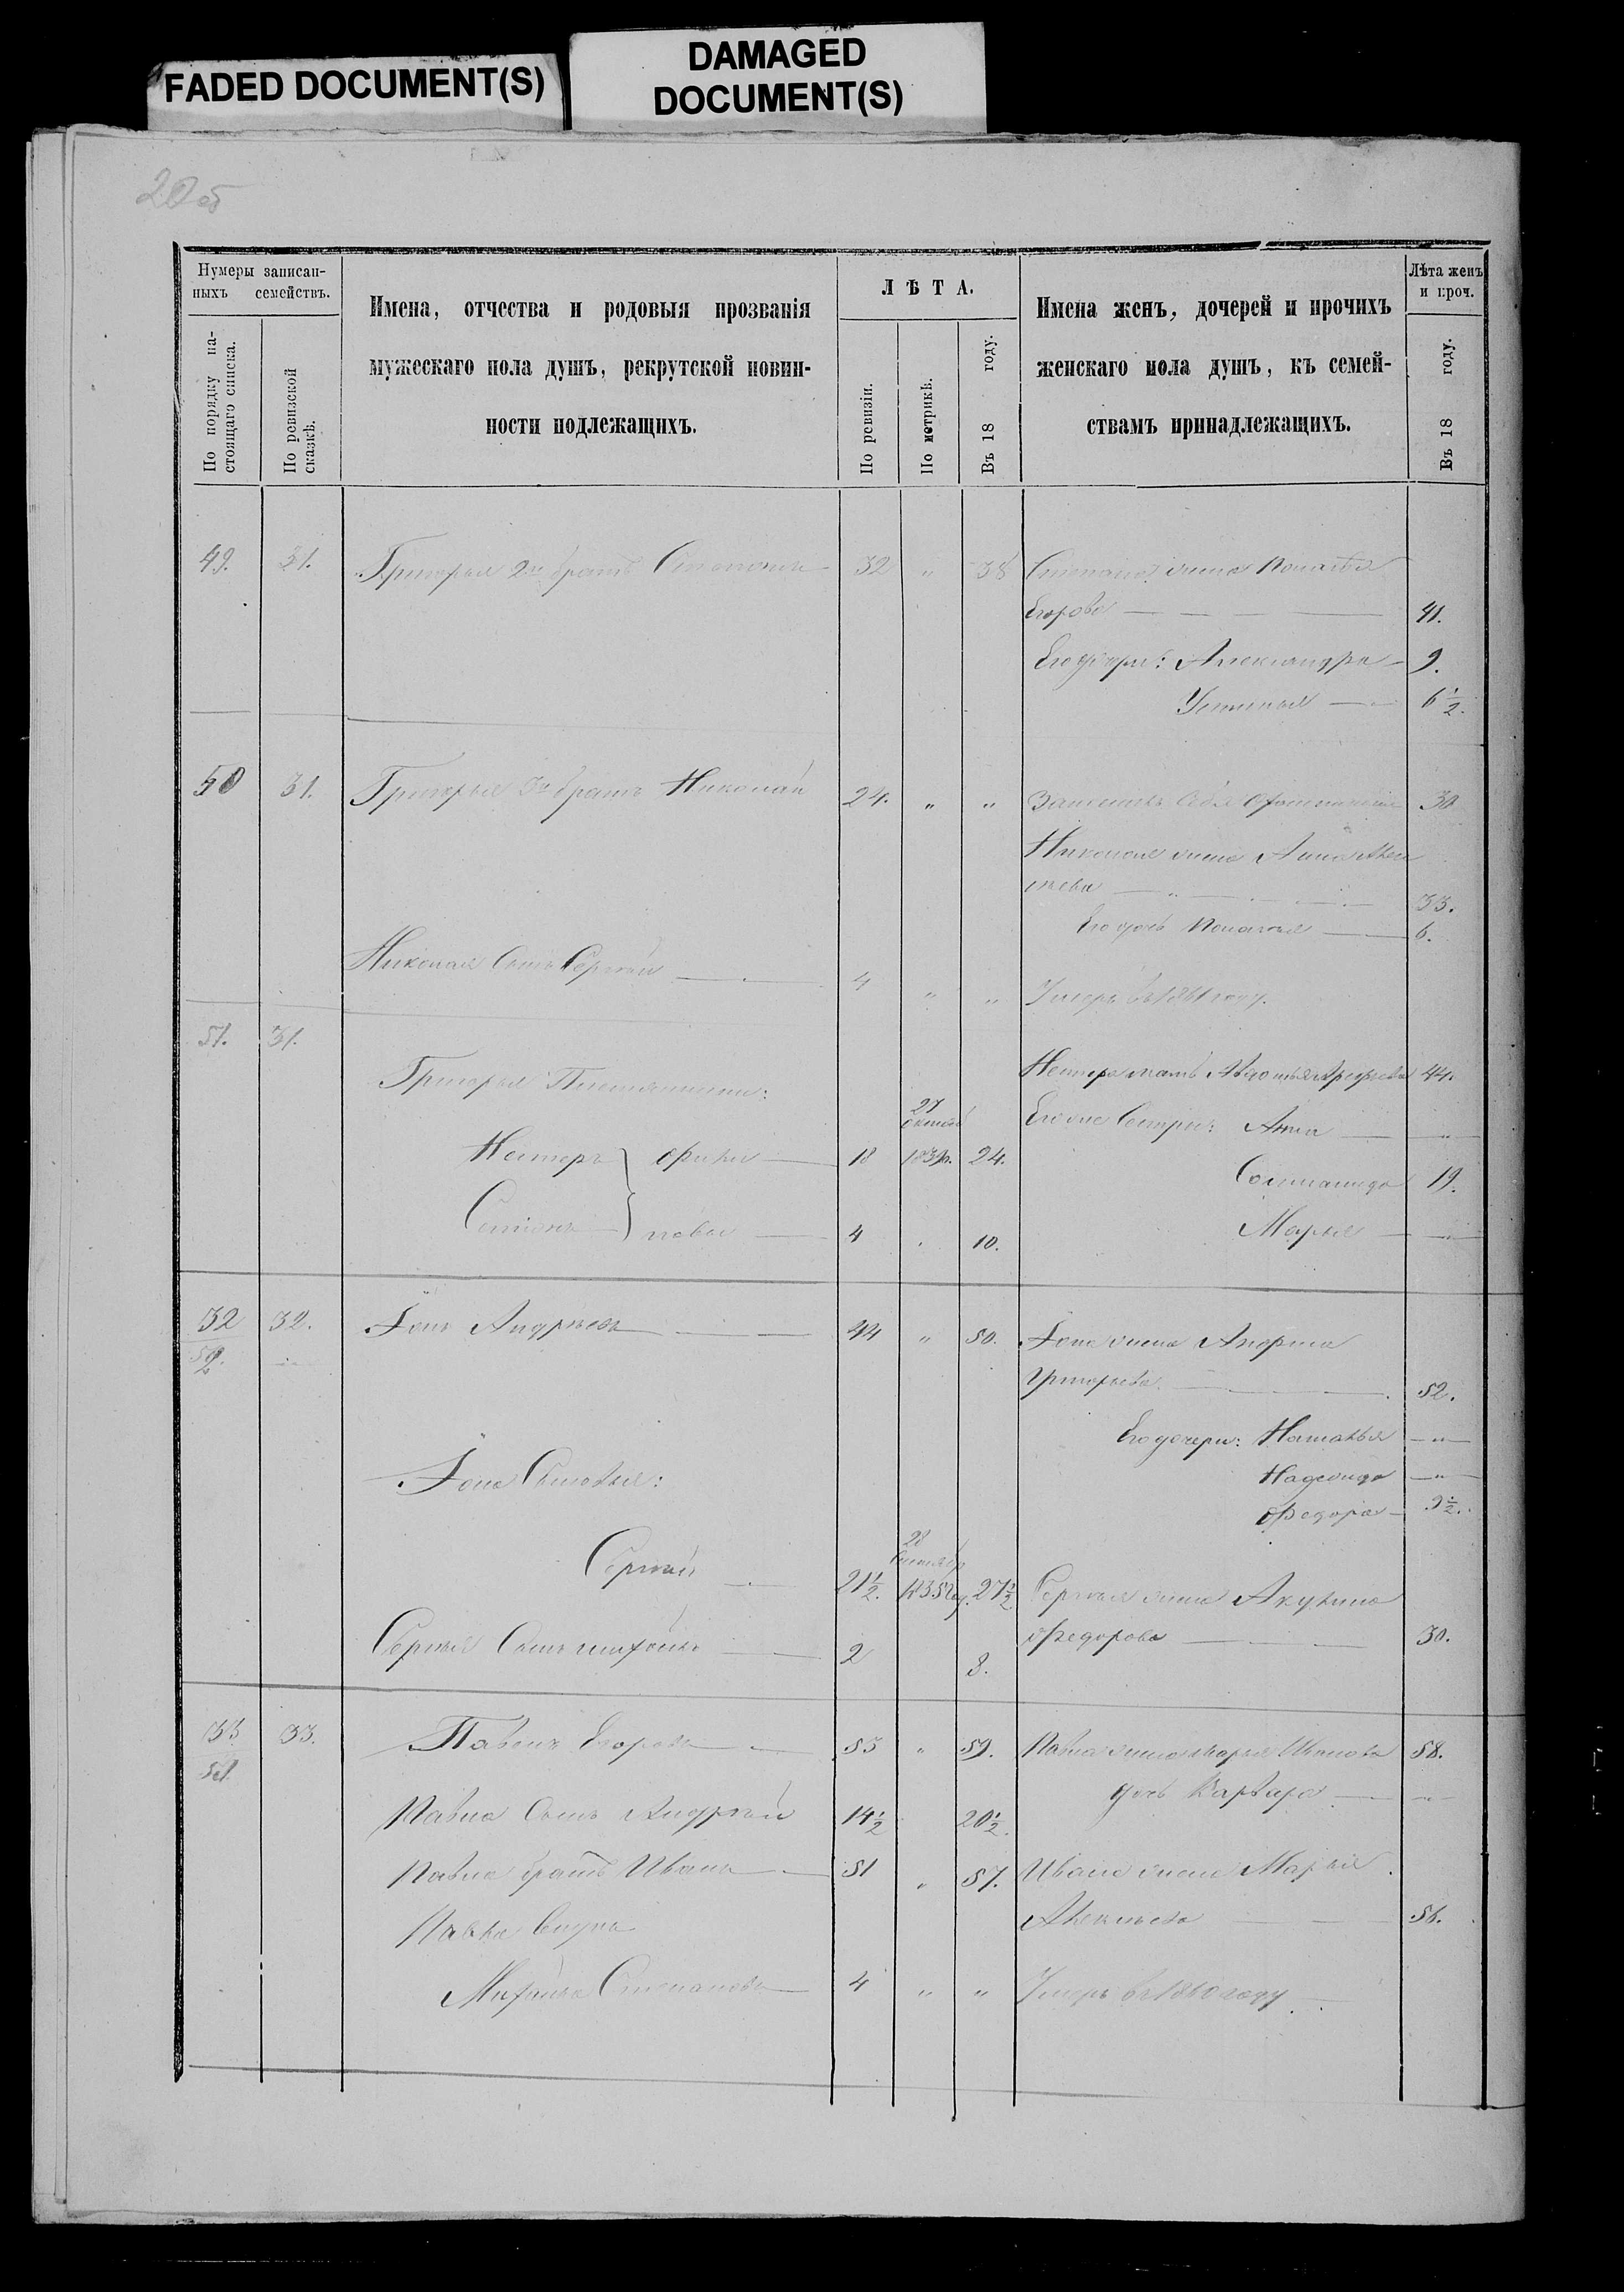 FADED DOCUMENT(S)
DAMAGED
DOCUMENT(S)
20 об
Нумеры записан-
ныхъ семействъ.
По порядку на-
стоящаго списка.
По ревизской
сказкѣ.
Имена, отчества и родовыя прозванія
мужескаго пола душъ, рекрутской повин-
ности подлежащихъ.
ЛѢТА.
По ревизіи.
По метрикѣ.
Въ 18 году.
Имена женъ, дочерей и прочихъ
женскаго пола душъ, къ семей-
ствамъ принадлежащихъ.
Лѣта женъ
и проч.
Въ 18 году.
49. 31. Григорья 2й братъ Степанъ 32 " 38 Степана жена Пелагея
Егорова 41.
Его дочери: Александра 9.
Устинья 6 1/2.
50 31. Григорья 3й братъ Николай 24. " " 30
Николая жена Анна Алек
сѣева 33.
Его дочь Пелагея 6.
Николая Сынъ Сергѣй 4 " " Умеръ въ 1861 году.
51. 31.
Григорья Племянники:
Нестера мать Авдотья 44.
27
октяб
Его же Сестры: Анна "
Нестеръ 18 24.
19.
Семенъ 4 10.
Марья "
32 32. Іонъ Андреевъ 44 " 50. Іона жена
52.
Григорьева 52.
Его дочери: Наталья "
Іона Сыновья:
Надежда "
Федора 9 1/2.
28
Сентябр
Сергѣй 21 1/2. 1835 г. 27 1/2 Сергѣя жена Акулина
Федорова 30.
Сергѣя Сынъ 2 8.
33 33. Павелъ Егоровъ 53 " 59. Павла жена Марья Иванова 58.
дочь Варвара "
Павла Сынъ Андрей 14 1/2 20 1/2.
Павла братъ Иванъ 51 " 57. Ивана жена Марья
Алексѣева 56.
Павла
Степановъ 4 " " Умеръ въ 1860 году